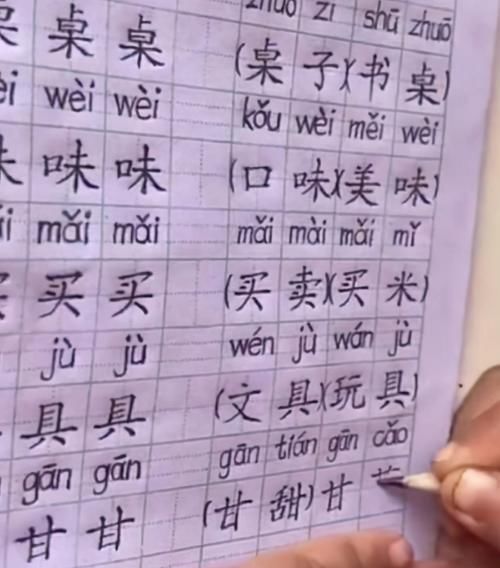 zhuō zi shū zhuō
桌 桌 (桌 子)(书 桌)
wèi wèi kǒu wèi měi wèi
味 味 (口 味)(美 味)
mǎi mǎi mǎi mài mǎi mǐ
买 买 (买 卖)(买 米)
jù jù wén jù wán jù
具 具 (文 具)(玩 具)
gān gān gān tián gān cǎo
甘 甘 (甘 甜) 甘